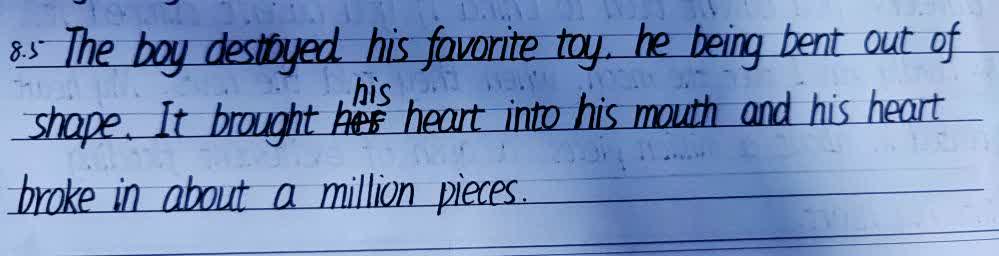 8.5 The boy destoyed his favorite toy. he being bent out of
shape. It brought his heart into his mouth and his heart
broke in about a million pieces.